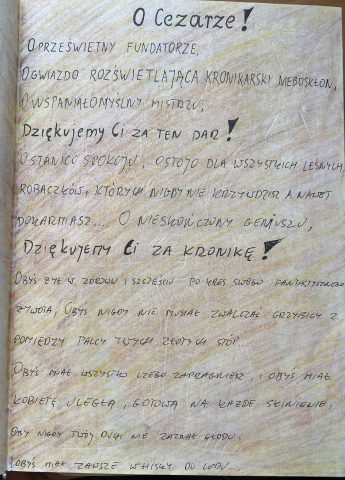 O Cezarze!
O PRZEŚWIETNY FUNDATORZE,
O GWIAZDO ROZŚWIETLAJĄCA KRONIKARSKI NIEBOSKŁON,
O WSPANIAŁOMYŚLNY MISTRZU,
DZIĘKUJEMY CI ZA TEN DAR!
O STANICO SPOKOJU, OSTOJO DLA WSZYSTKICH LEŚNYCH
ROBACZKÓW, KTÓRYCH NIGDY NIE KRZYWDZISZ A NAWET
DOKARMIASZ... O NIESKOŃCZONY GENIUSZU,
DZIĘKUJEMY CI ZA KRONIKĘ!
OBYŚ ŻYŁ W ZDROWIU I SZCZĘŚCIU PO KRES SWEGO FANTASTYCZNEGO
ŻYWOTA, OBYŚ NIGDY NIE MUSIAŁ ZWALCZAĆ GRZYBICY Z
POMIĘDZY PALCY TWYCH ZŁOTYCH STÓP...
OBYŚ MIAŁ WSZYSTKO CZEGO ZAPRAGNIESZ, I OBYŚ MIAŁ
KOBIETĘ ULEGŁĄ, GOTOWĄ NA KAŻDE SKINIENIE,
OBY NIGDY TWÓJ NIE ZAZNAŁ GŁODU,
I OBYŚ MIAŁ ZAWSZE WHISKY DO LODU...